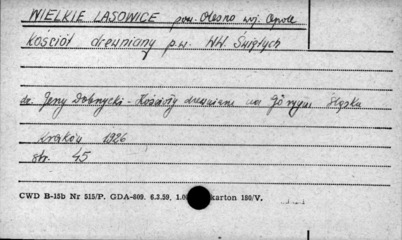 WIELKIE LASOWICE pow. Olesno woj. Opole
Kościół drewniany p.w. WW. Świętych
dr. Jerzy Dobrzycki - Kościoły drewniane na Górnym Śląsku
Kraków 1926
str. 45
CWD B-15b Nr 515/P. GDA-609. 6.3.59, karton 180/V.